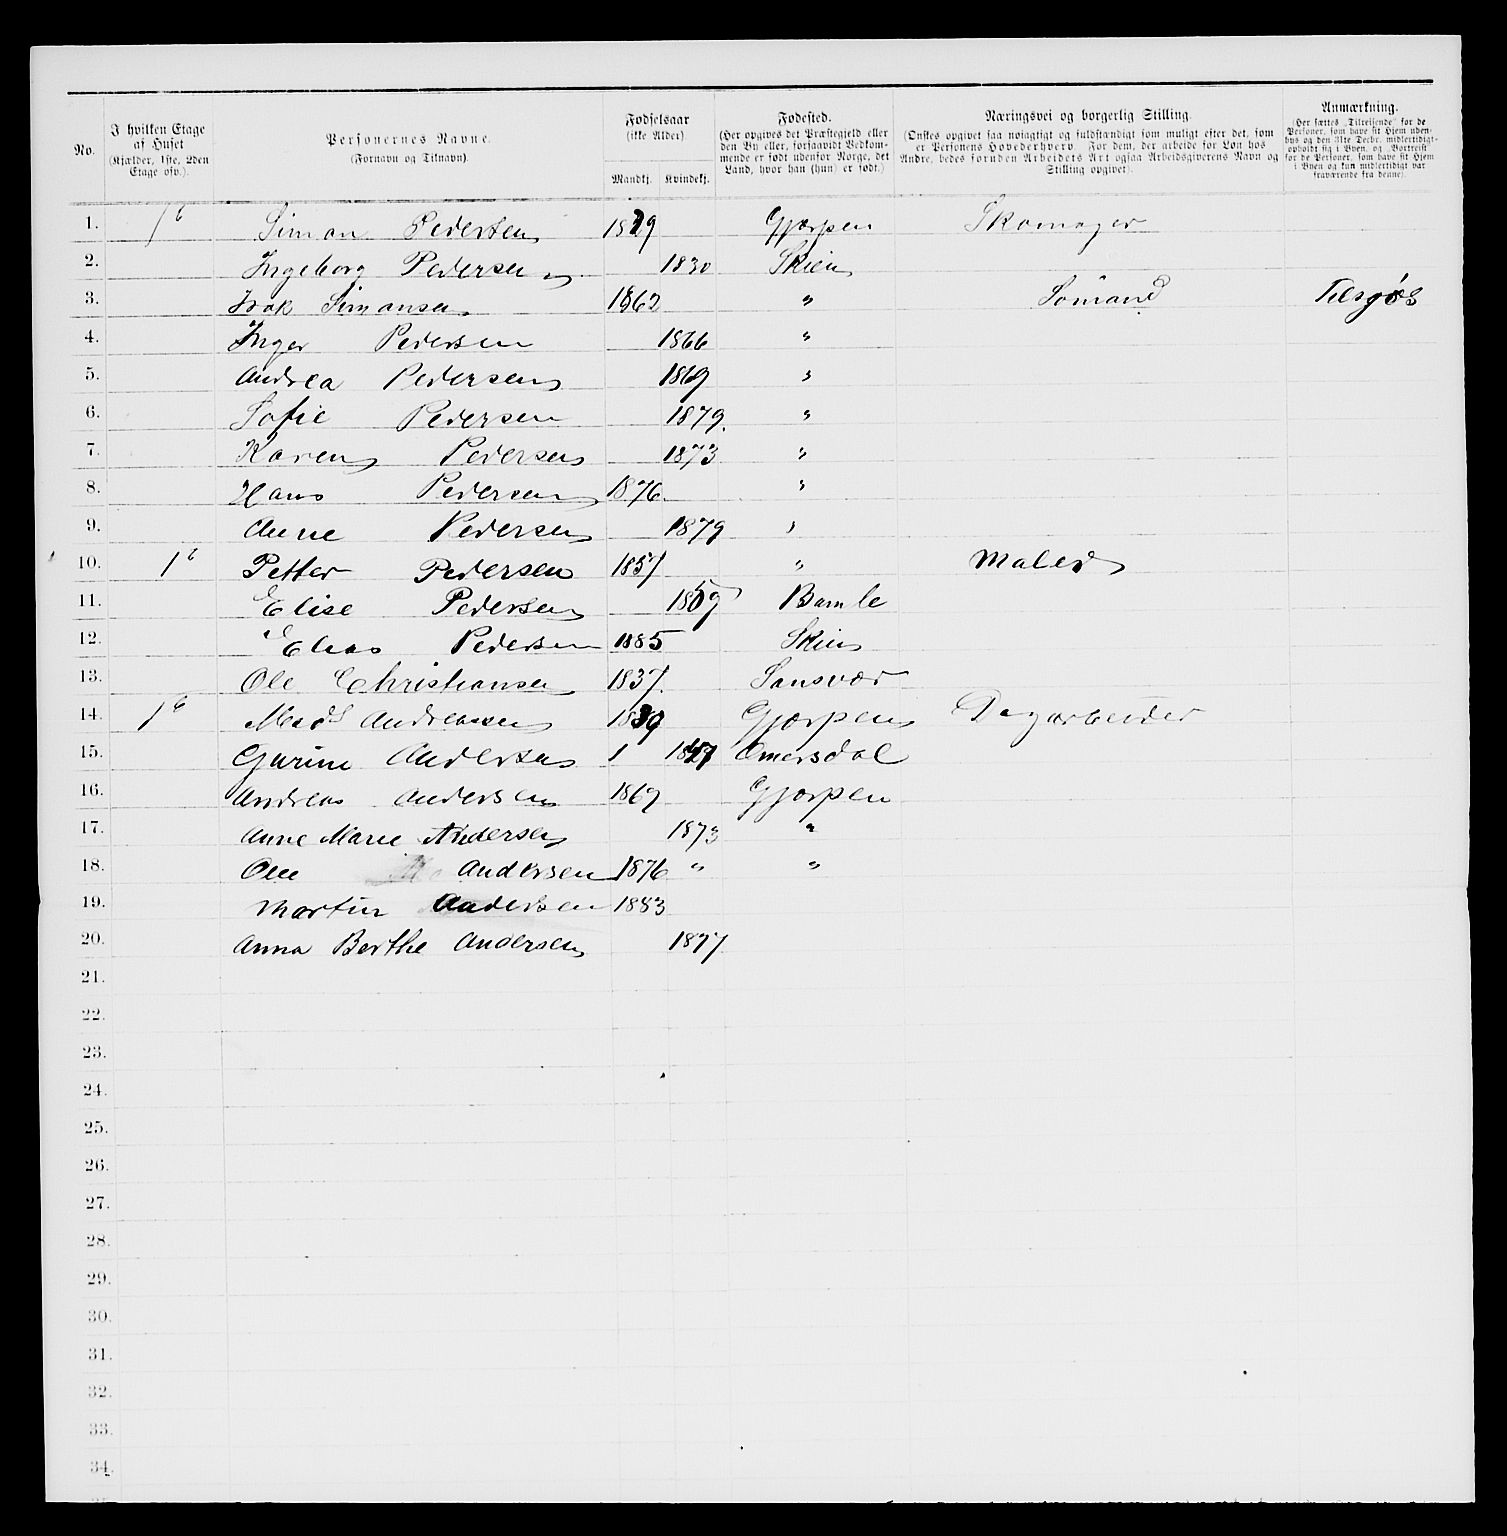 No.
I hvilken Etage af Huset (Kjælder, 1ste, 2den Etage osv.).
Personernes Navne. (Fornavn og Tilnavn).
Fødselsaar (ikke Alder)
Mandkj. Kvindekj.
Fødested. (Her opgives det Præstegjeld eller den By eller, forsaavidt Vedkommende er født udenfor Norge, det Land, hvor han (hun) er født.)
Næringsvei og borgerlig Stilling. (Ønskes opgivet saa nøiagtigt og fuldstændigt som muligt efter det, som er Personens Hovederhverv. For dem, der arbeide for Løn hos Andre, bedes foruden Arbeidets Art ogsaa Arbeidsgiverens Navn og Stilling opgivet).
Anmærkning. (Her sættes „Tilreisende" for de Personer, som have sit Hjem udenbys og den 31te Decbr. midlertidigt opholdt sig i Byen, og „Bortreist" for de Personer, som have sit Hjem i Byen og kun midlertidigt var fraværende fra denne).
1. 1 Simon Pedersen 1829 Gjerpen Skomager
2. Ingeborg Pedersen 1830 Skien
3. Isak Simonsen 1862 " Sømand Tilsjøs
4. Inger Pedersen 1866 "
5. Andrea Pedersen 1869 "
6. Sofie Pedersen 1879. "
7. Karen Pedersen 1873 "
8. Hans Pedersen 1876. "
9. Anne Pedersen 1879 "
10. 1 Petter Pedersen 1857 " Maler
11. Elise Pedersen 1859 Bamle
12. Elias Pedersen 1885 Skien
13. Ole Christiansen 1837. Sansvær
14. 1 Mads Andreassen 1839 Gjerpen Dagarbeider
15. Gurine Andersen Omersdal
16. Andreas Andersen 1869 Gjerpen
17. Anne Marie Andersen 1873 "
18. Ole Andersen 1876 " "
19. Martin Andersen 1883
20. Anna Berthe Andersen 1877
21.
22.
23.
24.
25.
26.
27.
28.
29.
30.
31.
32.
33.
34.